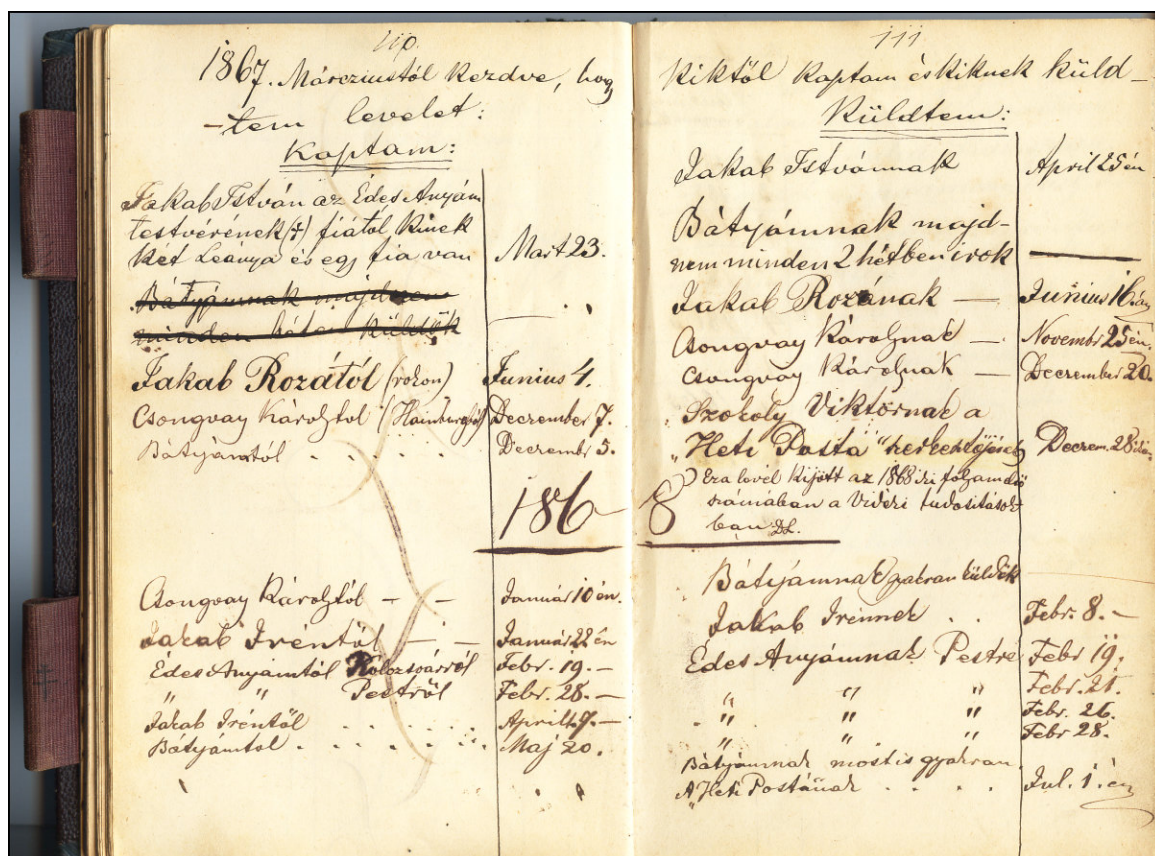 110.
1867. Márcziustól kezdve, hogy
-tem levelet:
Kaptam:
Jakab István az Édes Anyám
testvérének (†) fiatól kinek
két Leánya és egy fia van Mart 23.
Bátyámnak majdnem
minden héten küldök
Jakab Rozától (rokon) Junius 4.
Csongvay Károlytol (Hainburgból) Deczember 7.
Bátyámtól . . . . . Deczembr 5.
186-
Csongvay Károlytól - - Januar 10 én.
Jakab Iréntől - - Januar 22 én
Édes Anyámtól Kolozsvárról Febr. 19. -
" " Pestről Febr. 28. -
Jakab Iréntől . . . . . April 9. -
Bátyámtol . . . . . Maj 20.
111
kiktől kaptam és kiknek küld-
Küldtem:
Jakab Istvánnak April 25 én
Bátyámnak majd-
nem minden 2 hétben irok
Jakab Rozának — Junius 16. án
Csongvay Károlynak — Novembr 25 én.
Csongvay Károlynak — Deczember 20.
Szokoly Viktornak a
"Heti Posta" szerkesztőjének Deczem. 28 án
) Eza levél kijött az 1868 iki folyam
számában a Vidéki tudositások
ban. DL.
8
Bátyámnak gyakran küldök
Jakab Irennek . . Febr. 8. -
Édes Anyámnak Pestre Febr 19.
Febr. 21.
" " " Febr. 26.
" " " Febr 28.
Bátyámnak most is gyakran
A "Heti Postának . . . . Jul. 1. én